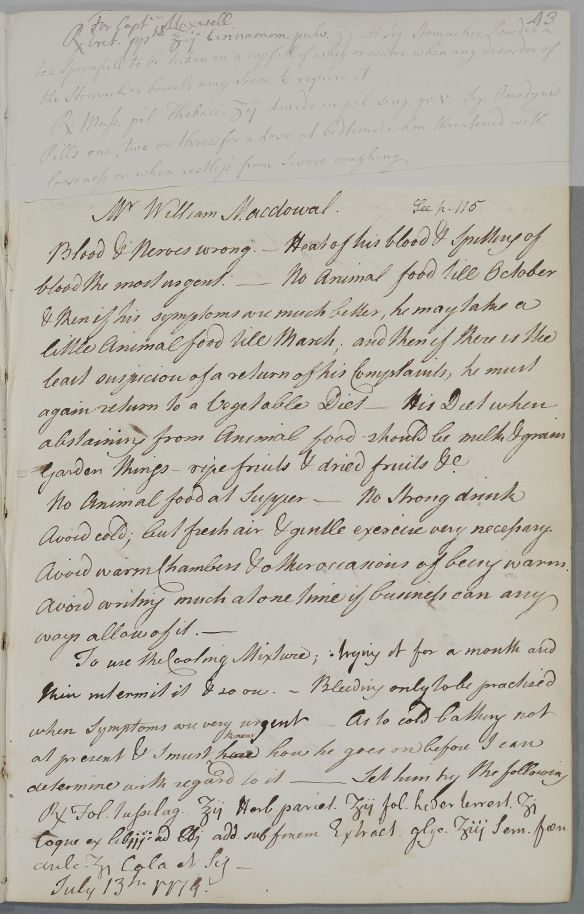 43
For Captn Maxwell
℞ Cret. ppt ℥ij Cinnamom. pulv. ʒj M. Sig. Stomachic Powder a
tea Spoonfull to be taken in a cupfull of whey or water when any disorder of
the Stomach or bowels may seem to require it
℞ Mass. pil. Thebaic. ʒij divide in pil. sing. gr. v. Sig. Anodyne
Pills one, two or three for a dose at bedtime when threatened with
looseness or when restless from severe coughing
Mr William Macdowal. See p. 115
Blood & Nerves wrong. — Heat of his blood & Spitting of
blood the most urgent. — No Animal food till October
& then if his symptoms are much better, he may take a
little Animal food till March; and then if there is the
least suspicion of a return of his Complaints, he must
again return to a Vegetable Diet — His Diet when
abstaining from Animal food should be milk & grain
Garden things - ripe fruits & dried fruits &c
No Animal food at Supper — No Strong drink
Avoid cold; but fresh air & gentle exercise very necessary.
Avoid warm Chambers & other occasions of being warm.
Avoid writing much at one time if business can any
ways allow of it. —
To use the Cooling Mixture; trying it for a month and
then intermit it & so on. - Bleeding only to be practised
when Symptoms are very urgent — As to cold bathing not
at present & I must have know how he goes on before I can
determine with regard to it — Let him try the following
℞ Fol. tussilag. ʒij Herb. pariet. ʒij fol. heder terrest. ʒj
Coque ex lib iij ad lbij add. sub finem Extract. glyc. ʒiij Sem. fœn
dulc. ʒj Cola et Sig —
July 13th 1774.